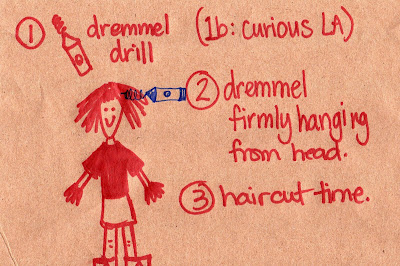 ① dremmel (1b: curious LA)
drill
② dremmel
firmly hanging
from head.
③ haircut time.